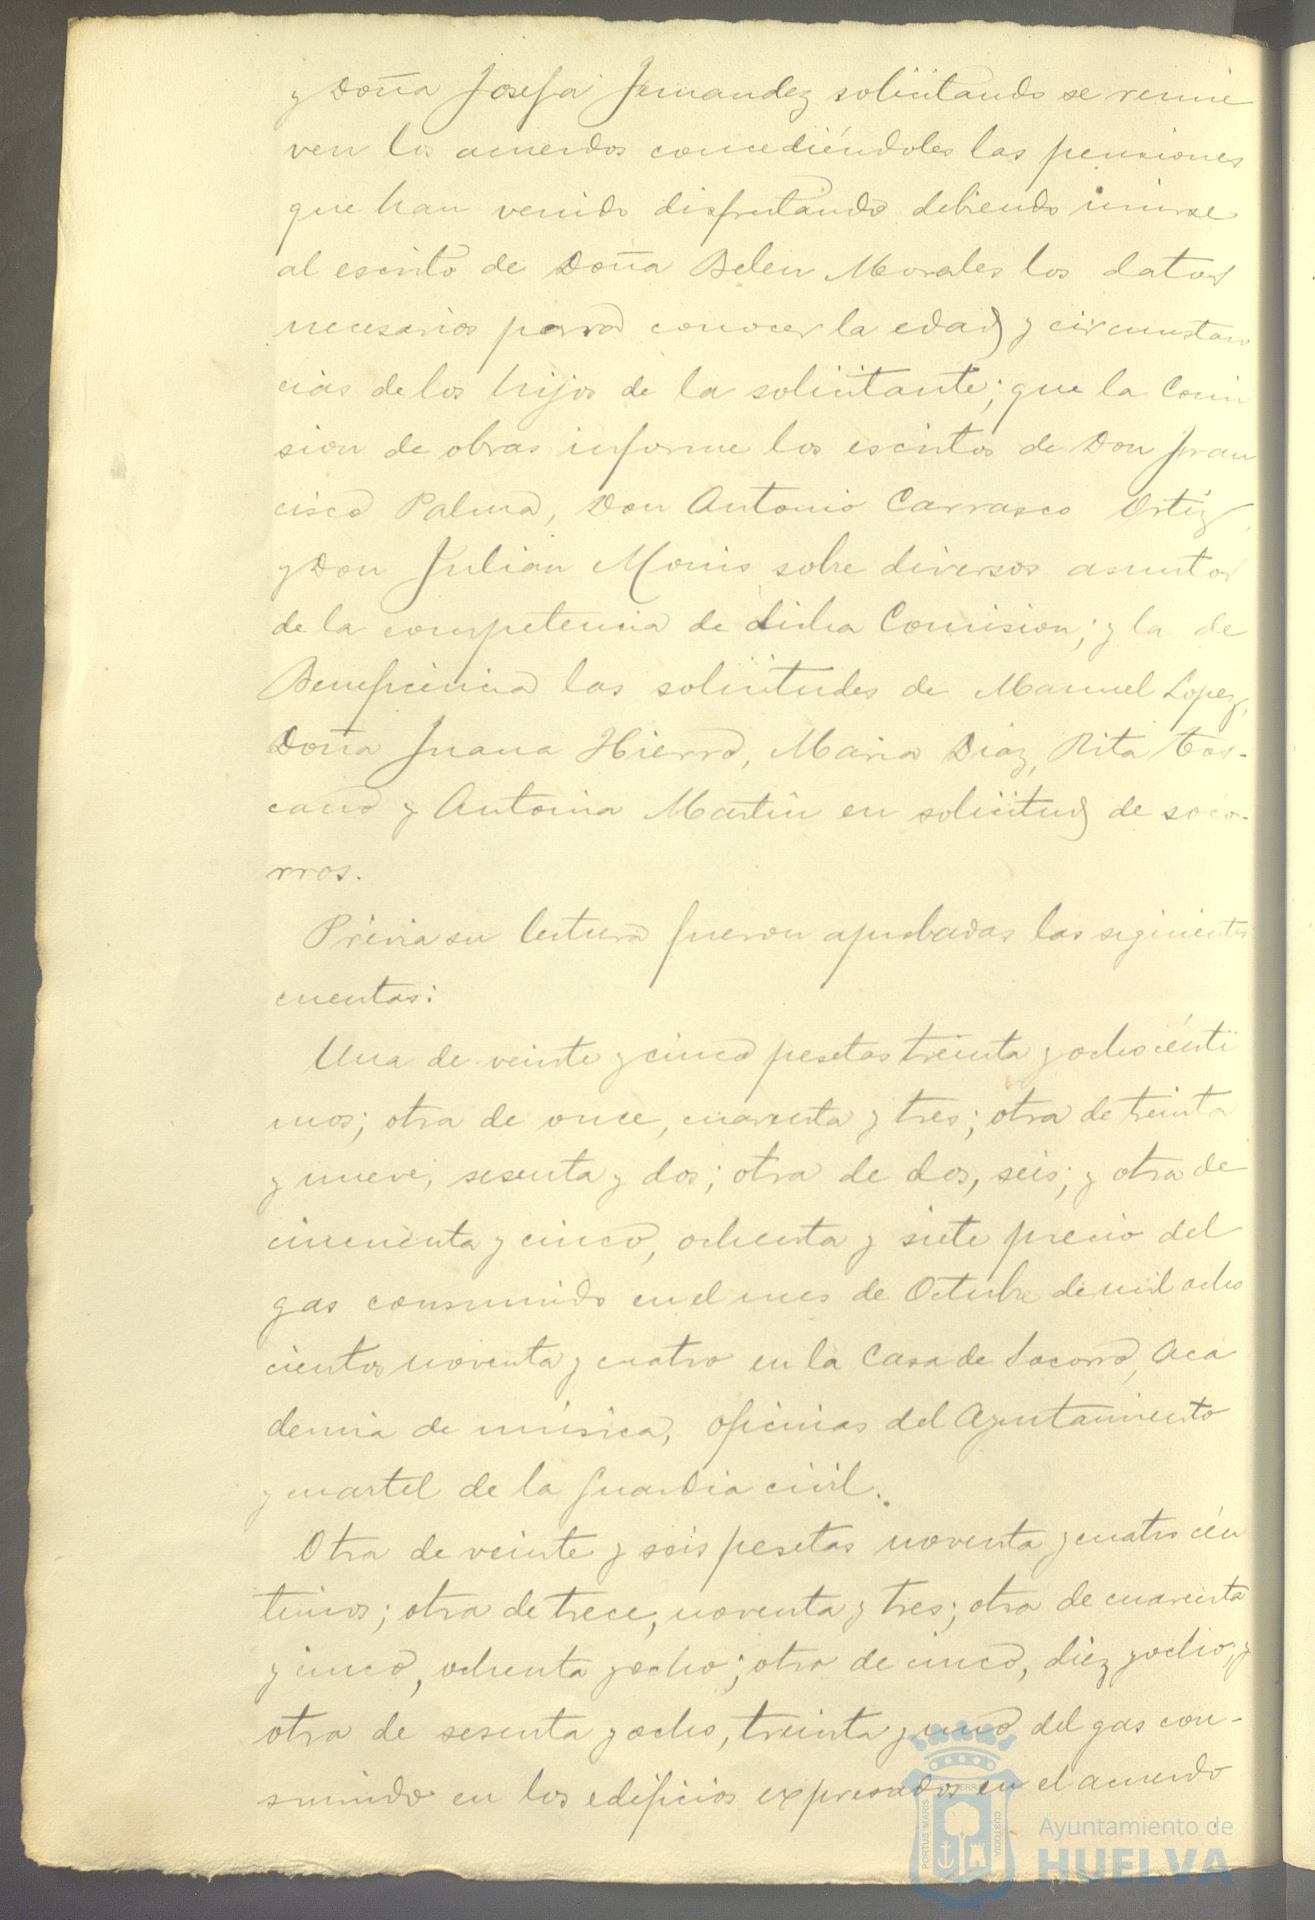 y Doña Josefa Fernandez solicitando se renue
ven los acuerdos concediéndoles las pensiones
que han venido disfrutando debiendo unirse
al escrito de Doña Belen Morales los datos
necesarios para conocer la edad y circunstan
cias de los hijos de la solicitante; que la Comi
sion de obras informe los escritos de Don Fran
cisco Palma, Don Antonio Carrasco Ortiz,
y Don Julian Monis sobre diversos asuntos
de la competencia de dicha Comision; y la de
Beneficencia las solicitudes de Manuel Lopez,
Doña Juana Hierro, Maria Diaz, Rita Tos-
cano y Antonia Martin en solicitud de soco-
rros.
Prévia su lectura fueron aprobadas las siguientes
cuentas:
Una de veinte y cinco pesetas treinta y ocho cénti
mos; otra de once, cuarenta y tres; otra de treinta
y nueve, sesenta y dos; otra de dos, seis; y otra de
cincuenta y cinco, ochenta y siete precio del
gas consumido en el mes de Octubre de mil ocho
cientos noventa y cuatro en la Casa de Socorro, Aca
demia de música, oficinas del Ayuntamiento
y cuartel de la Guardia civil.
Otra de veinte y seis pesetas noventa y cuatro cén
timos; otra de trece, noventa y tres; otra de cuarenta
y cinco, ochenta y ocho; otra de cinco, diez y ocho, y
otra de sesenta y ocho, treinta y uno, del gas con-
sumido en los edificios expresados en el acuerdo
PORTUS MARIS
TERRE
CUSTODIA
Ayuntamiento de
HUELVA